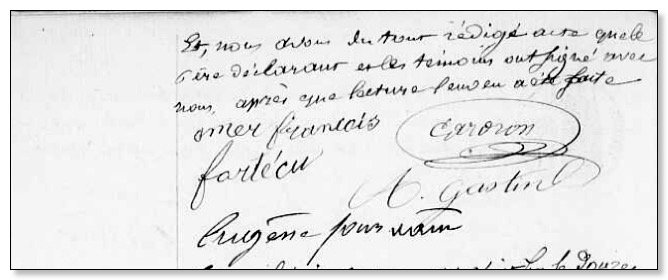 Et, nous avons du tout rédigé acte que le
père déclarant et les témoins ont signé avec
nous, après que lecture leur en a été faite
omer françois
Caroron
fartécu
A. Gastine
Eugène